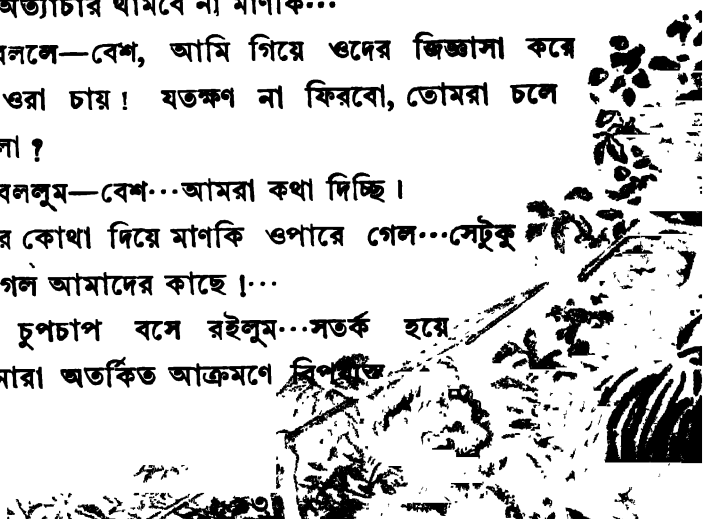 অত্যাচার থামবে না মাণকি···
বললে—বেশ, আমি গিয়ে ওদের জিজ্ঞাসা করে
ওরা চায়! যতক্ষণ না ফিরবো, তোমরা চলে
?
বললুম—বেশ···আমরা কথা দিচ্ছি।
র কোথা দিয়ে মাণকি ওপারে গেল···সেটুকু
গেল আমাদের কাছে!···
চুপচাপ বসে রইলুম···সতর্ক হয়ে
অতর্কিত আক্রমণে বিপর্যস্ত